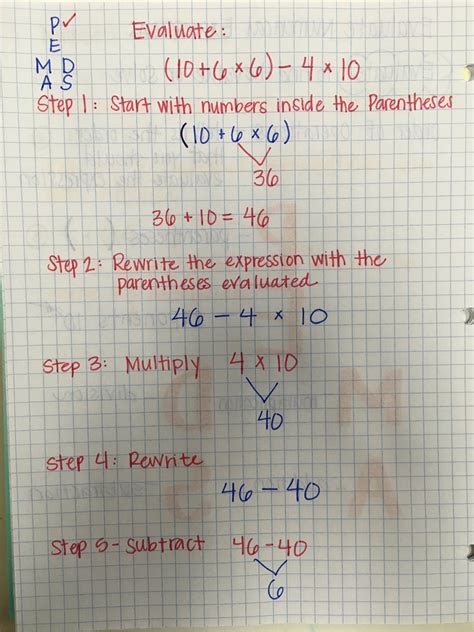 P✓ Evaluate:
E
M D (10+6×6)-4×10
A S
Step 1: Start with numbers inside the Parentheses
(10+6×6)
36
36+10=46
Step 2: Rewrite the expression with the
parentheses evaluated
46-4×10
Step 3: Multiply 4×10
40
Step 4: Rewrite
46-40
Step 5-Subtract 46-40
6